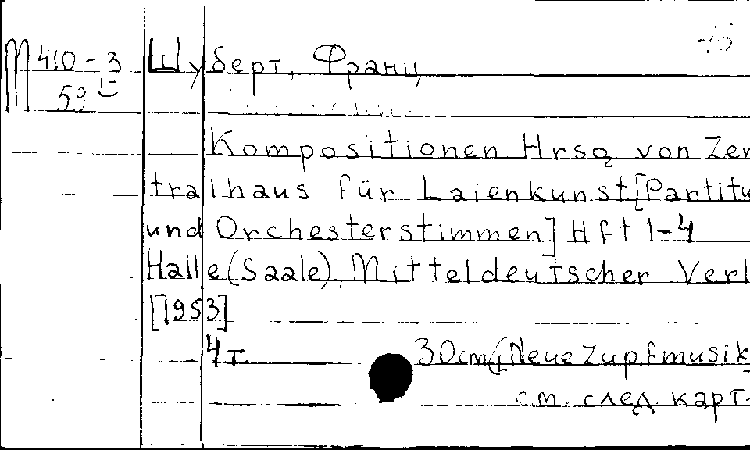 М 410-3 Шуберт, Франц
59
Kompositionen Hrsg von Zen
tralhaus für Laienkunst [Partitu
und Orchesterstimmen] Hft 1-4
Halle (Saale) Mitteldeutscher Verl
[1953]
4 т. 30cm (Neue Zupfmusik
см. след. карт.